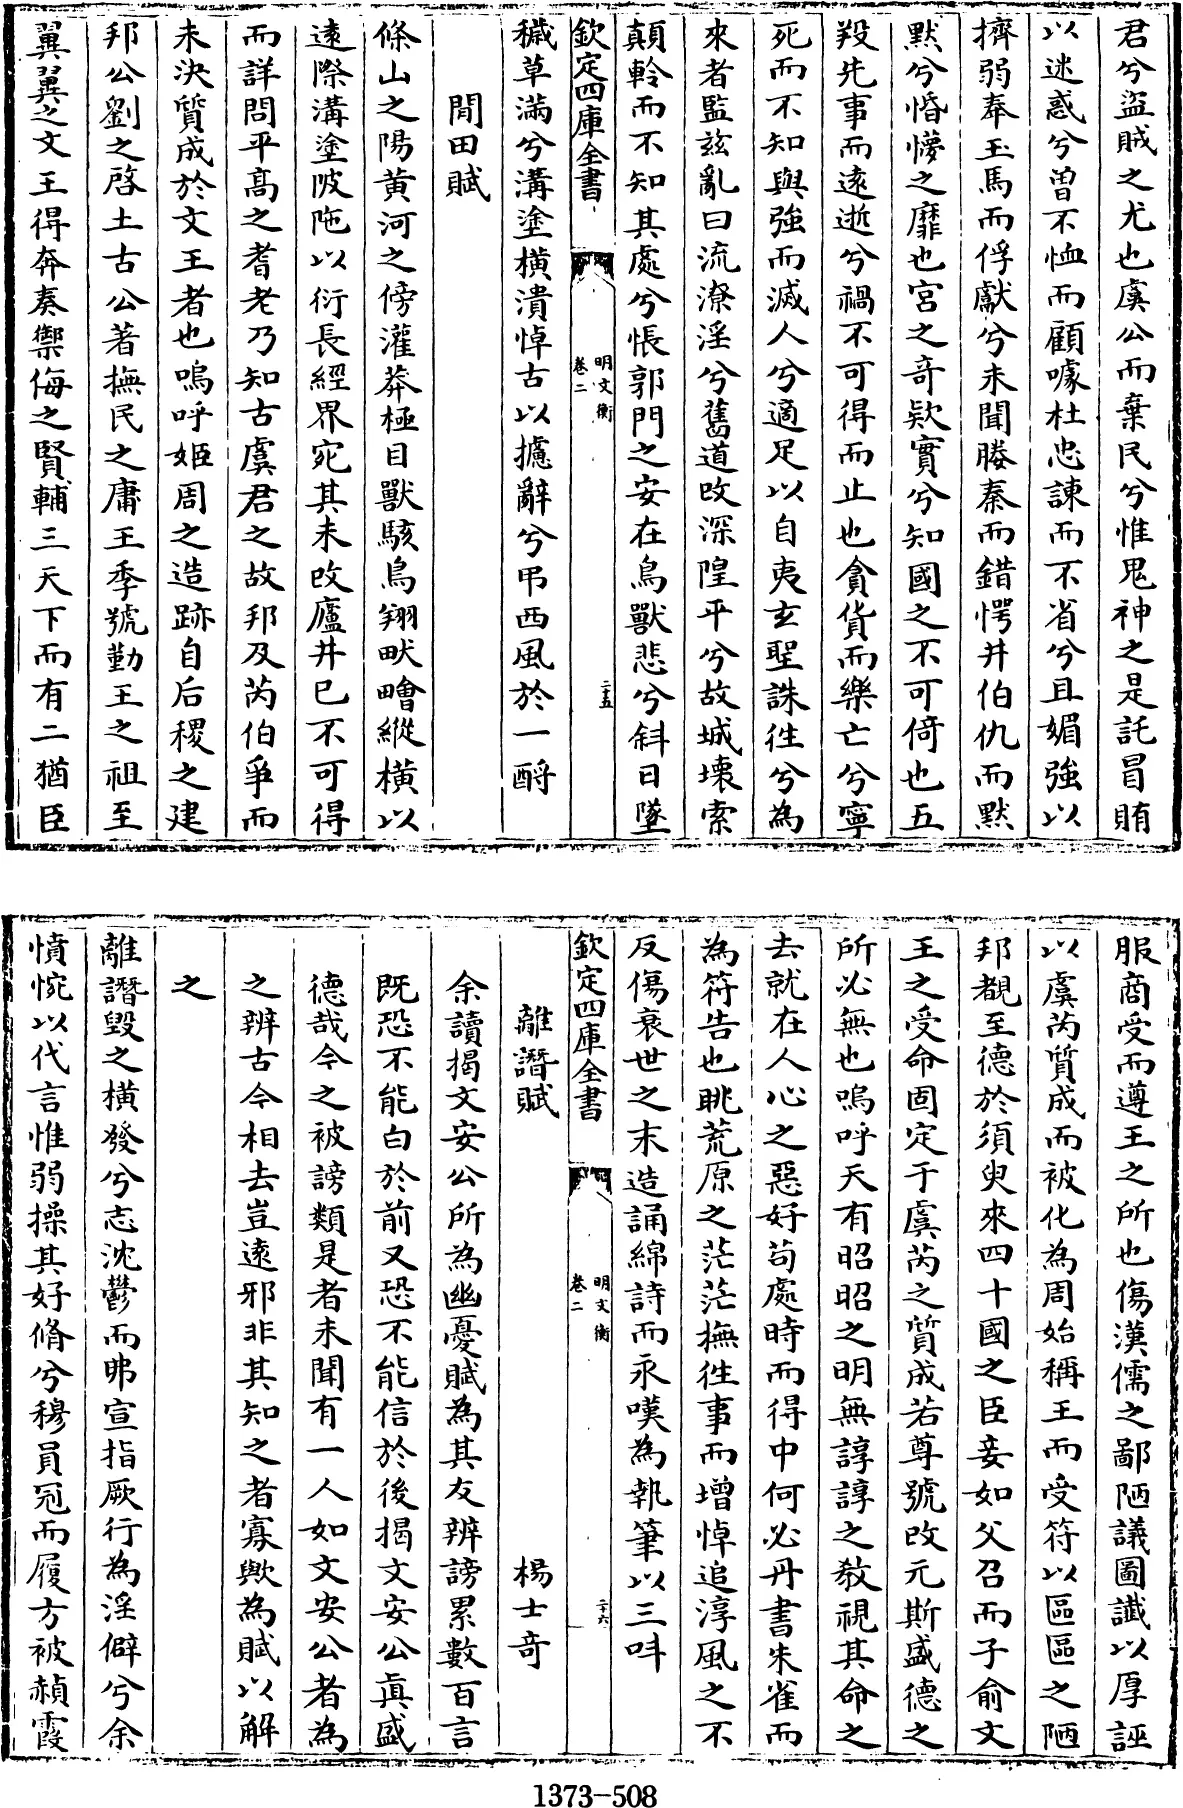 君兮盜賊之尤也虞公而棄民兮惟鬼神之是託冒賄
以迷惑兮曽不恤而顧噱杜忠諫而不省兮且媚強以
擠弱奉玉馬而俘獻兮未聞勝秦而錯愕井伯仇而默
默兮惛懜之靡也宮之竒欵實兮知國之不可倚也五
羖先事而遠逝兮禍不可得而止也貪貨而樂亡兮寧
死而不知與強而滅人兮適足以自夷玄聖誅徃兮為
來者監兹亂曰流潦淫兮舊道改深隍平兮故城壊索
顛軨而不知其處兮悵郭門之安在鳥獸悲兮斜日墜
欽定四庫全書
明文衡
卷二
二十五
穢草滿兮溝塗横潰悼古以攄辭兮弔西風於一酹
閒田賦
條山之陽黄河之傍灌莽極目獸駭鳥翔畎畮縱横以
逺際溝塗陂陁以衍長經界宛其未改廬井已不可得
而詳問平髙之耆老乃知古虞君之故邦及芮伯爭而
未決質成於文王者也嗚呼姬周之造跡自后稷之建
邦公劉之啓土古公著撫民之庸王季號勤王之祖至
翼翼之文王得奔奏禦侮之賢輔三天下而有二猶臣
服商受而遵王之所也傷漢儒之鄙陋議圖讖以厚誣
以虞芮質成而被化為周始稱王而受符以區區之陋
邦覩至德於須臾來四十國之臣妾如父召而子俞文
王之受命固定于虞芮之質成若尊號改元斯盛德之
所必無也嗚呼天有昭昭之明無諄諄之教視其命之
去就在人心之惡好苟處時而得中何必丹書朱雀而
為符告也眺荒原之茫茫撫徃事而增悼追淳風之不
反傷衰世之末造誦綿詩而永嘆為執筆以三呌
欽定四庫全書
明文衡
卷二
二十六
離譖賦 楊士竒
余讀揭文安公所為幽憂賦為其友辨謗累數百言
既恐不能白於前又恐不能信於後揭文安公真盛
德哉今之被謗類是者未聞有一人如文安公者為
之辨古今相去豈遠邪非其知之者寡歟為賦以解
之
離譖毀之横發兮志沈鬱而弗宣指厥行為淫僻兮余
憤惋以代言惟弱操其好脩兮穆員冠而履方被赬霞
1373-508